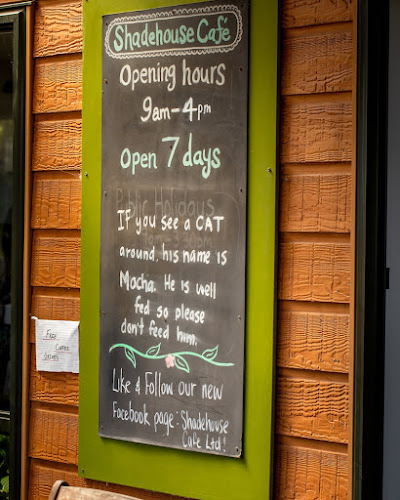 Shadehouse Cafe
Opening hours
9am-4pm
Open 7 days
Public Holidays
If you see a CAT
around, his name is
Mocha. He is well
fed so please
don't feed him.
Like & Follow our new
Facebook page: Shadehouse
Cafe Ltd!